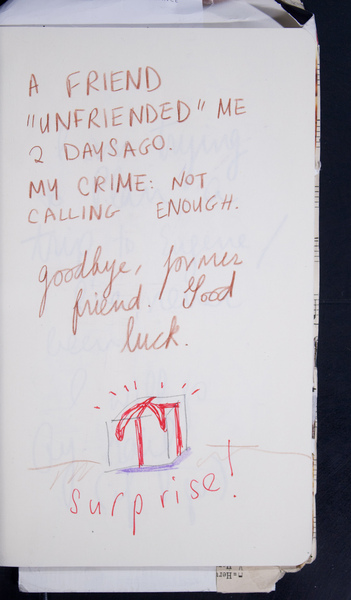 A FRIEND
"UNFRIENDED" ME
2 DAYS AGO.
MY CRIME: NOT
CALLING ENOUGH.
goodbye, former
friend. Good
luck.
surprise!